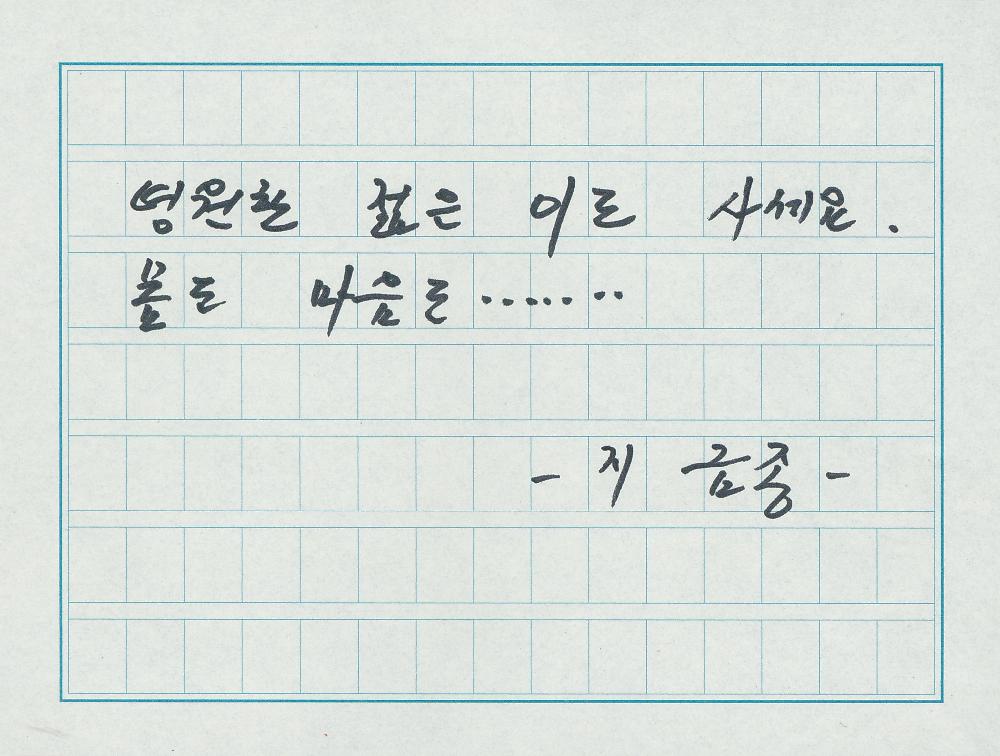 영원한 젊은 이로 사세요.
몸도 마음도........
- 지 금종 -